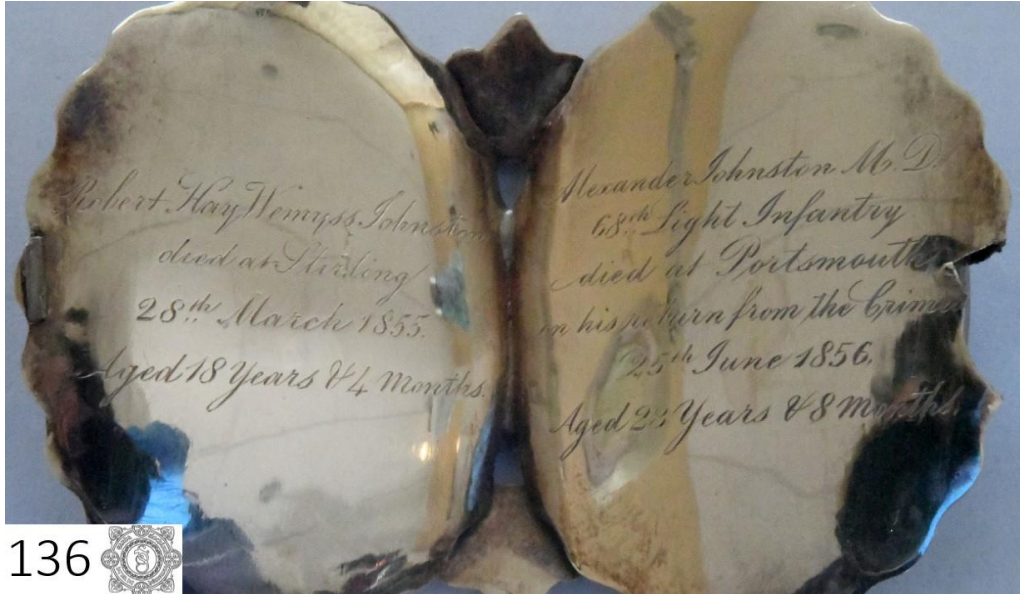 Robert Hay Wemyss Johnston
died at Stirling
28.th March 1855.
Aged 18 Years & 4 Months.
Alexander Johnston M.D.
68.th Light Infantry
died at Portsmouth
on his return from the Crimea
25.th June 1856.
Aged Years & 8 Months.
136